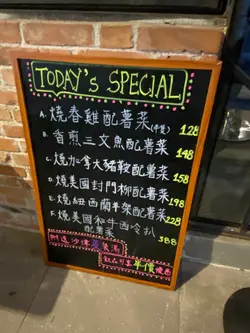 TODAY'S SPECIAL
A. 燒春雞配薯菜(半隻) 128
B. 香煎三文魚配薯菜 148
C. 燒力加拿大豬鞍配薯菜 158
D. 燒美國封門柳配薯菜 198
E. 燒紐西蘭羊架配薯菜 228
F. 燒美國和牛西冷扒
配薯菜 388
附送沙律及餐湯
飲品可享半價優惠